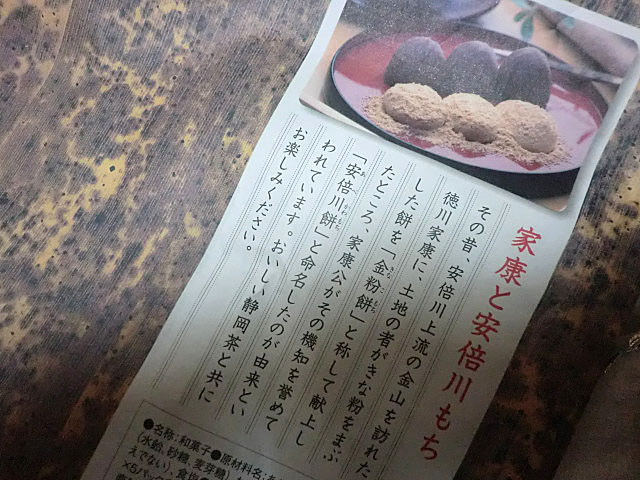 家康と安倍川もち
その昔、安倍川上流の金山を訪れた
徳川家康に、土地の者がきな粉をまぶ
した餅を「金粉餅」と称して献上し
たところ、家康公がその機知を誉めて
「安倍川餅」と命名したのが由来とい
われています。おいしい静岡茶と共に
お楽しみください。
●名称:和菓子●原材料名:
(水飴、砂糖、麦芽糖)
えでない)、食塩
×5パック